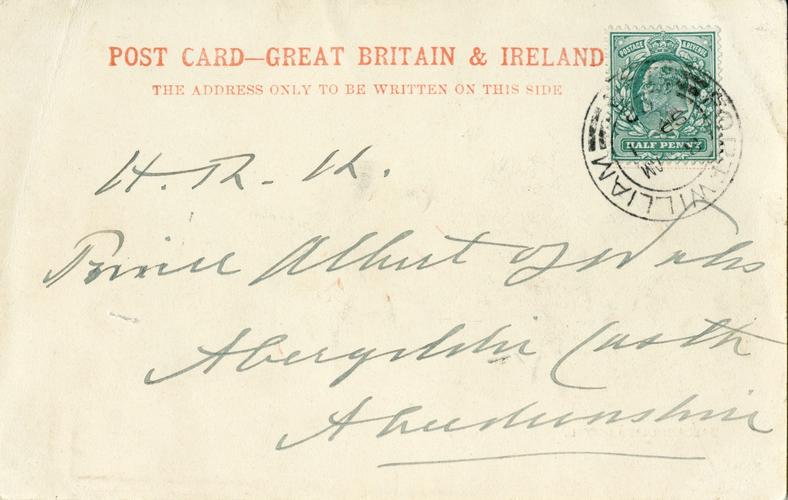 POST CARD—GREAT BRITAIN & IRELAND
THE ADDRESS ONLY TO BE WRITTEN ON THIS SIDE
POSTAGE & REVENUE
HALF PENNY
FORT WILLIAM
H. R. H.
Prince Albert of Wales
Abergeldie Castle
Aberdeenshire